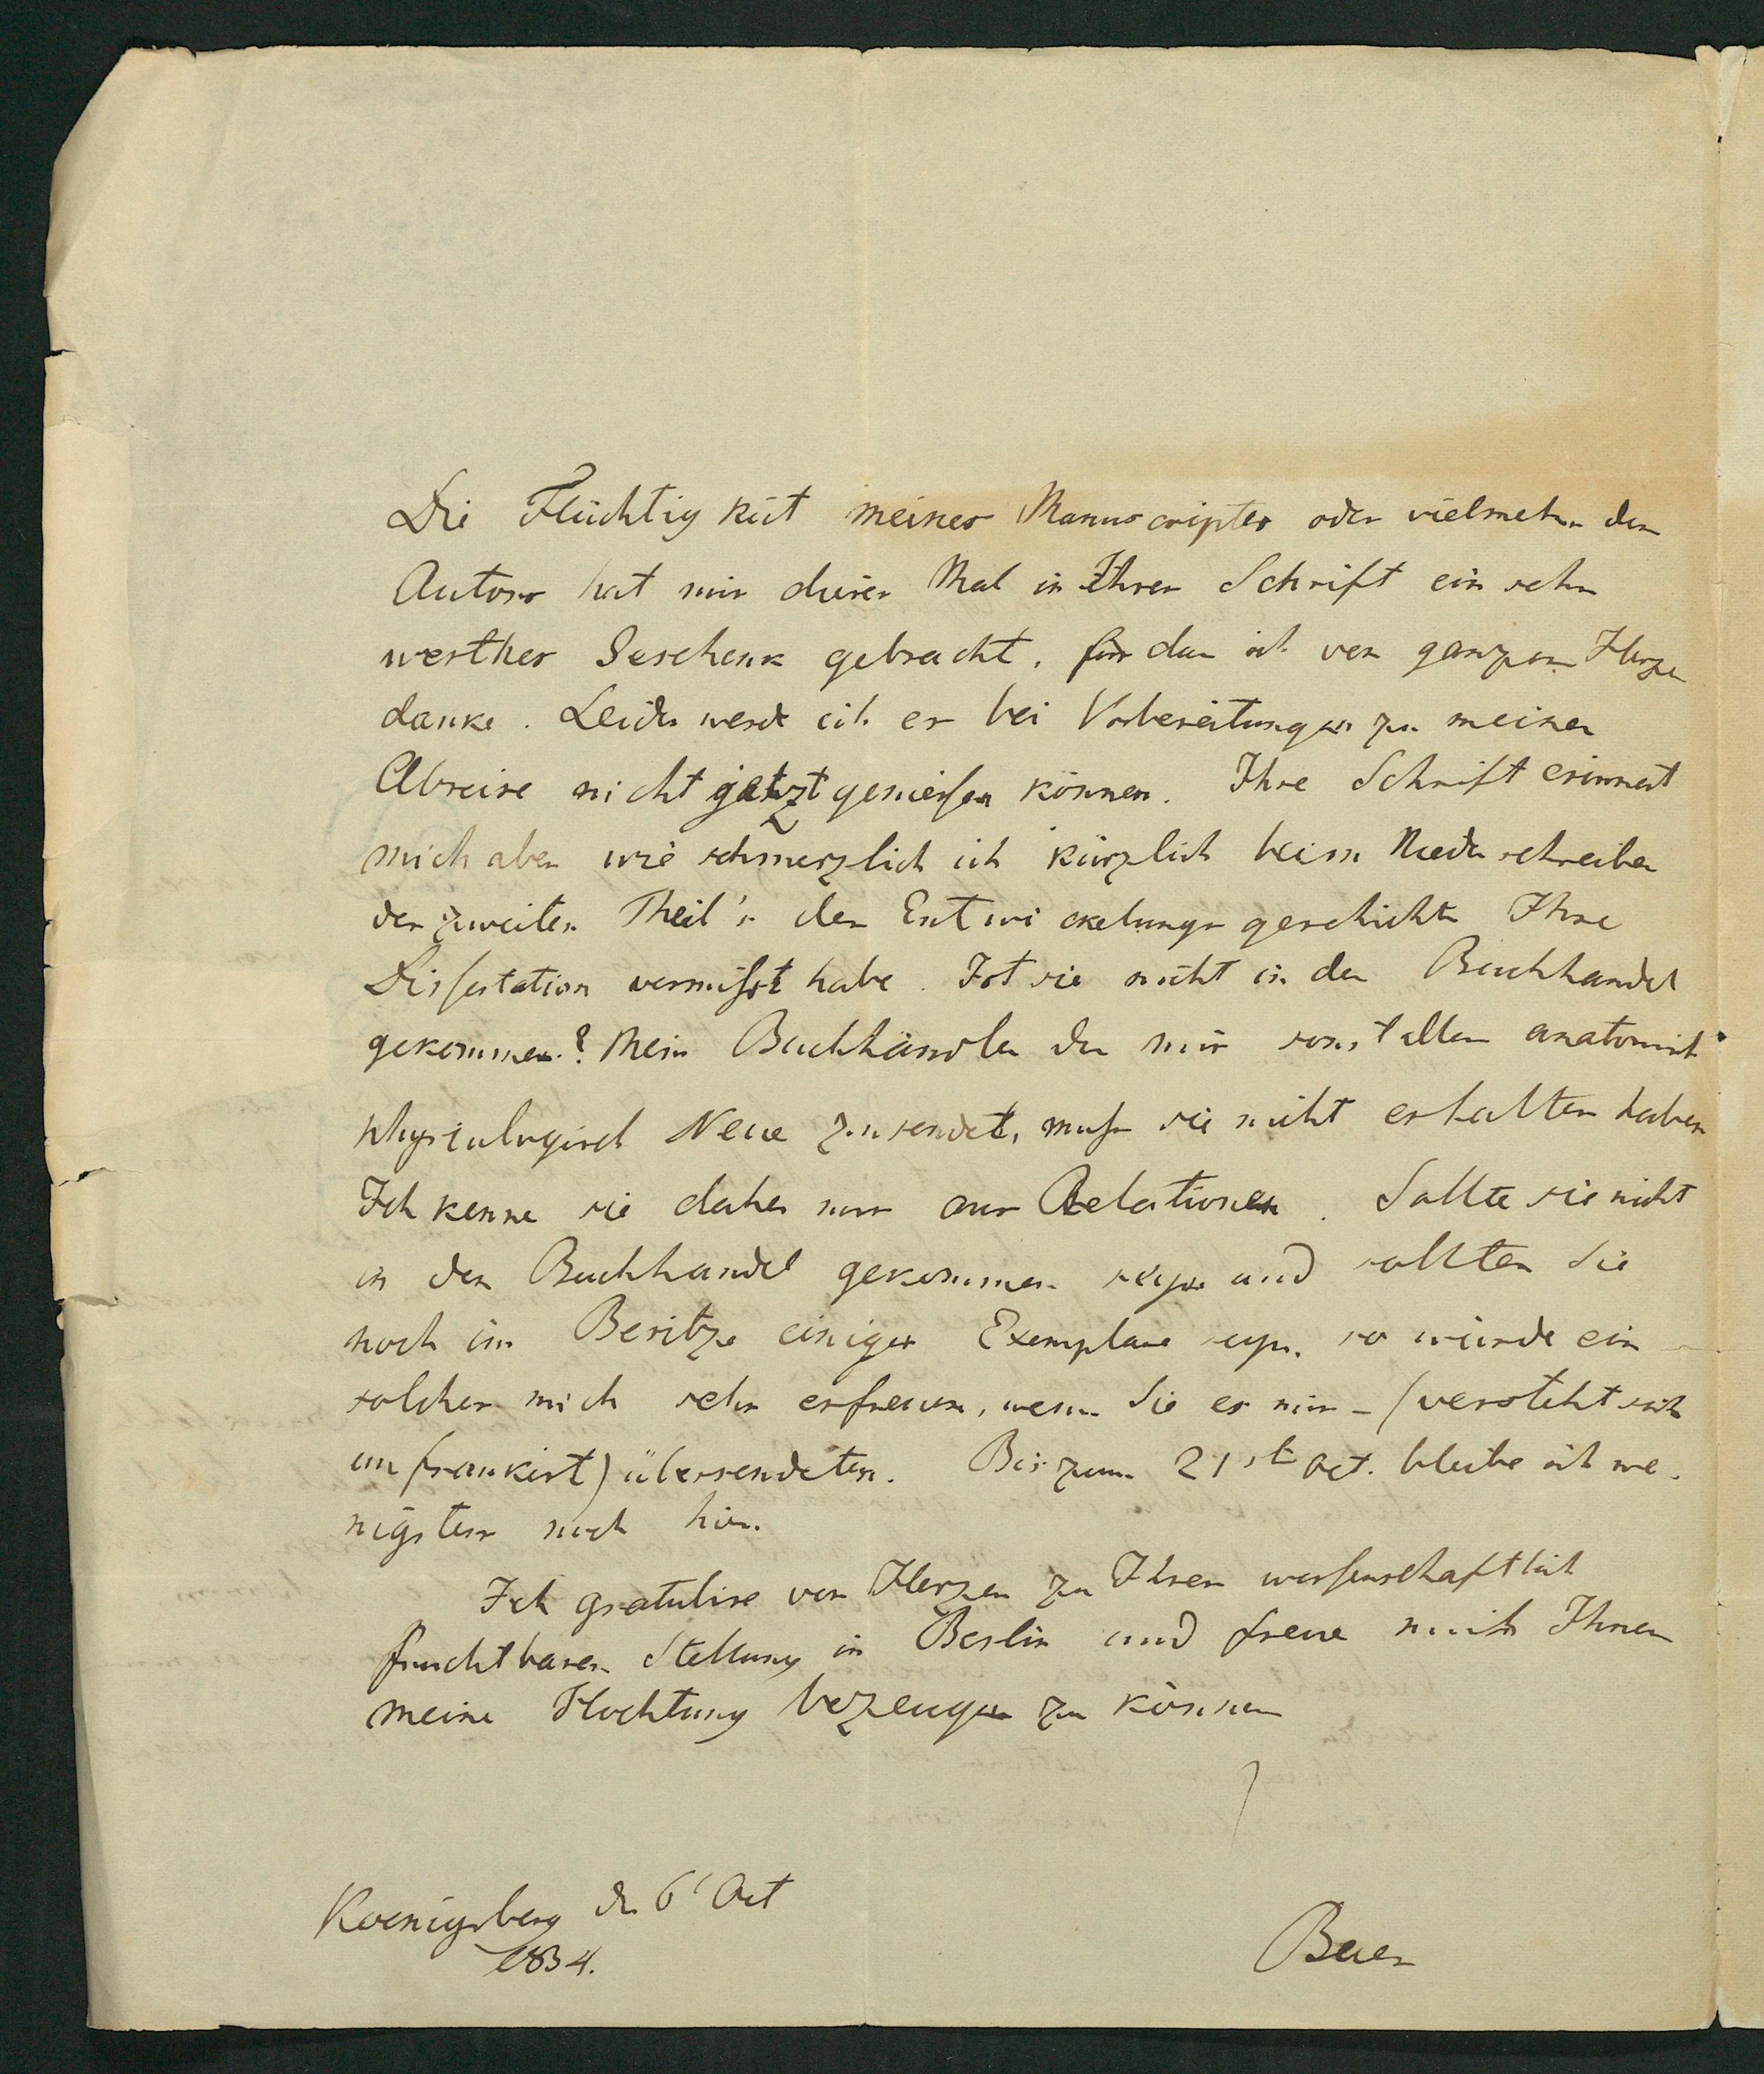 Die Flüchtigkeit meines Manuscriptes oder vielmehr des
Autors hat mir dieses Mal in Ihrer Schrift ein sehr
werthes Geschenk gebracht, für das ich von ganzem Herzen
danke. Leider werde ich es bei Vorbereitungen zu meiner
Abreise nicht jetzt genießen können. Ihre Schrift erinnert
mich aber wie schmerzlich ich kürzlich beim Niederschreiben
des zweiten Theil's der Entwickelungsgeschichte Ihre
Dissertation vermißt habe. Ist sie nicht in den Buchhandel
gekommen? Mein Buchhändler der mir sonst alles anatomisch
physiologisch Neue zusendet, muß sie nicht erhalten haben
Ich kenne sie daher nur aus Relationen. Sollte sie nicht
in den Buchhandel gekommen seyn und sollten Sie
noch im Besitze einiger Exemplare seyn, so würde ein
solches mich sehr erfreuen, wenn Sie es mir – (versteht sich
unfrankirt) übersendeten. Bis zum 21st Oct. bleibe ich we-
nigstens noch hier.
Ich gratulire von Herzen zu Ihrer wissenschaftlich
fruchtbaren Stellung in Berlin und freue mich Ihnen
meine Hochtung bezeugen zu können
Koenigsberg d 6t Oct
1834.
Baer